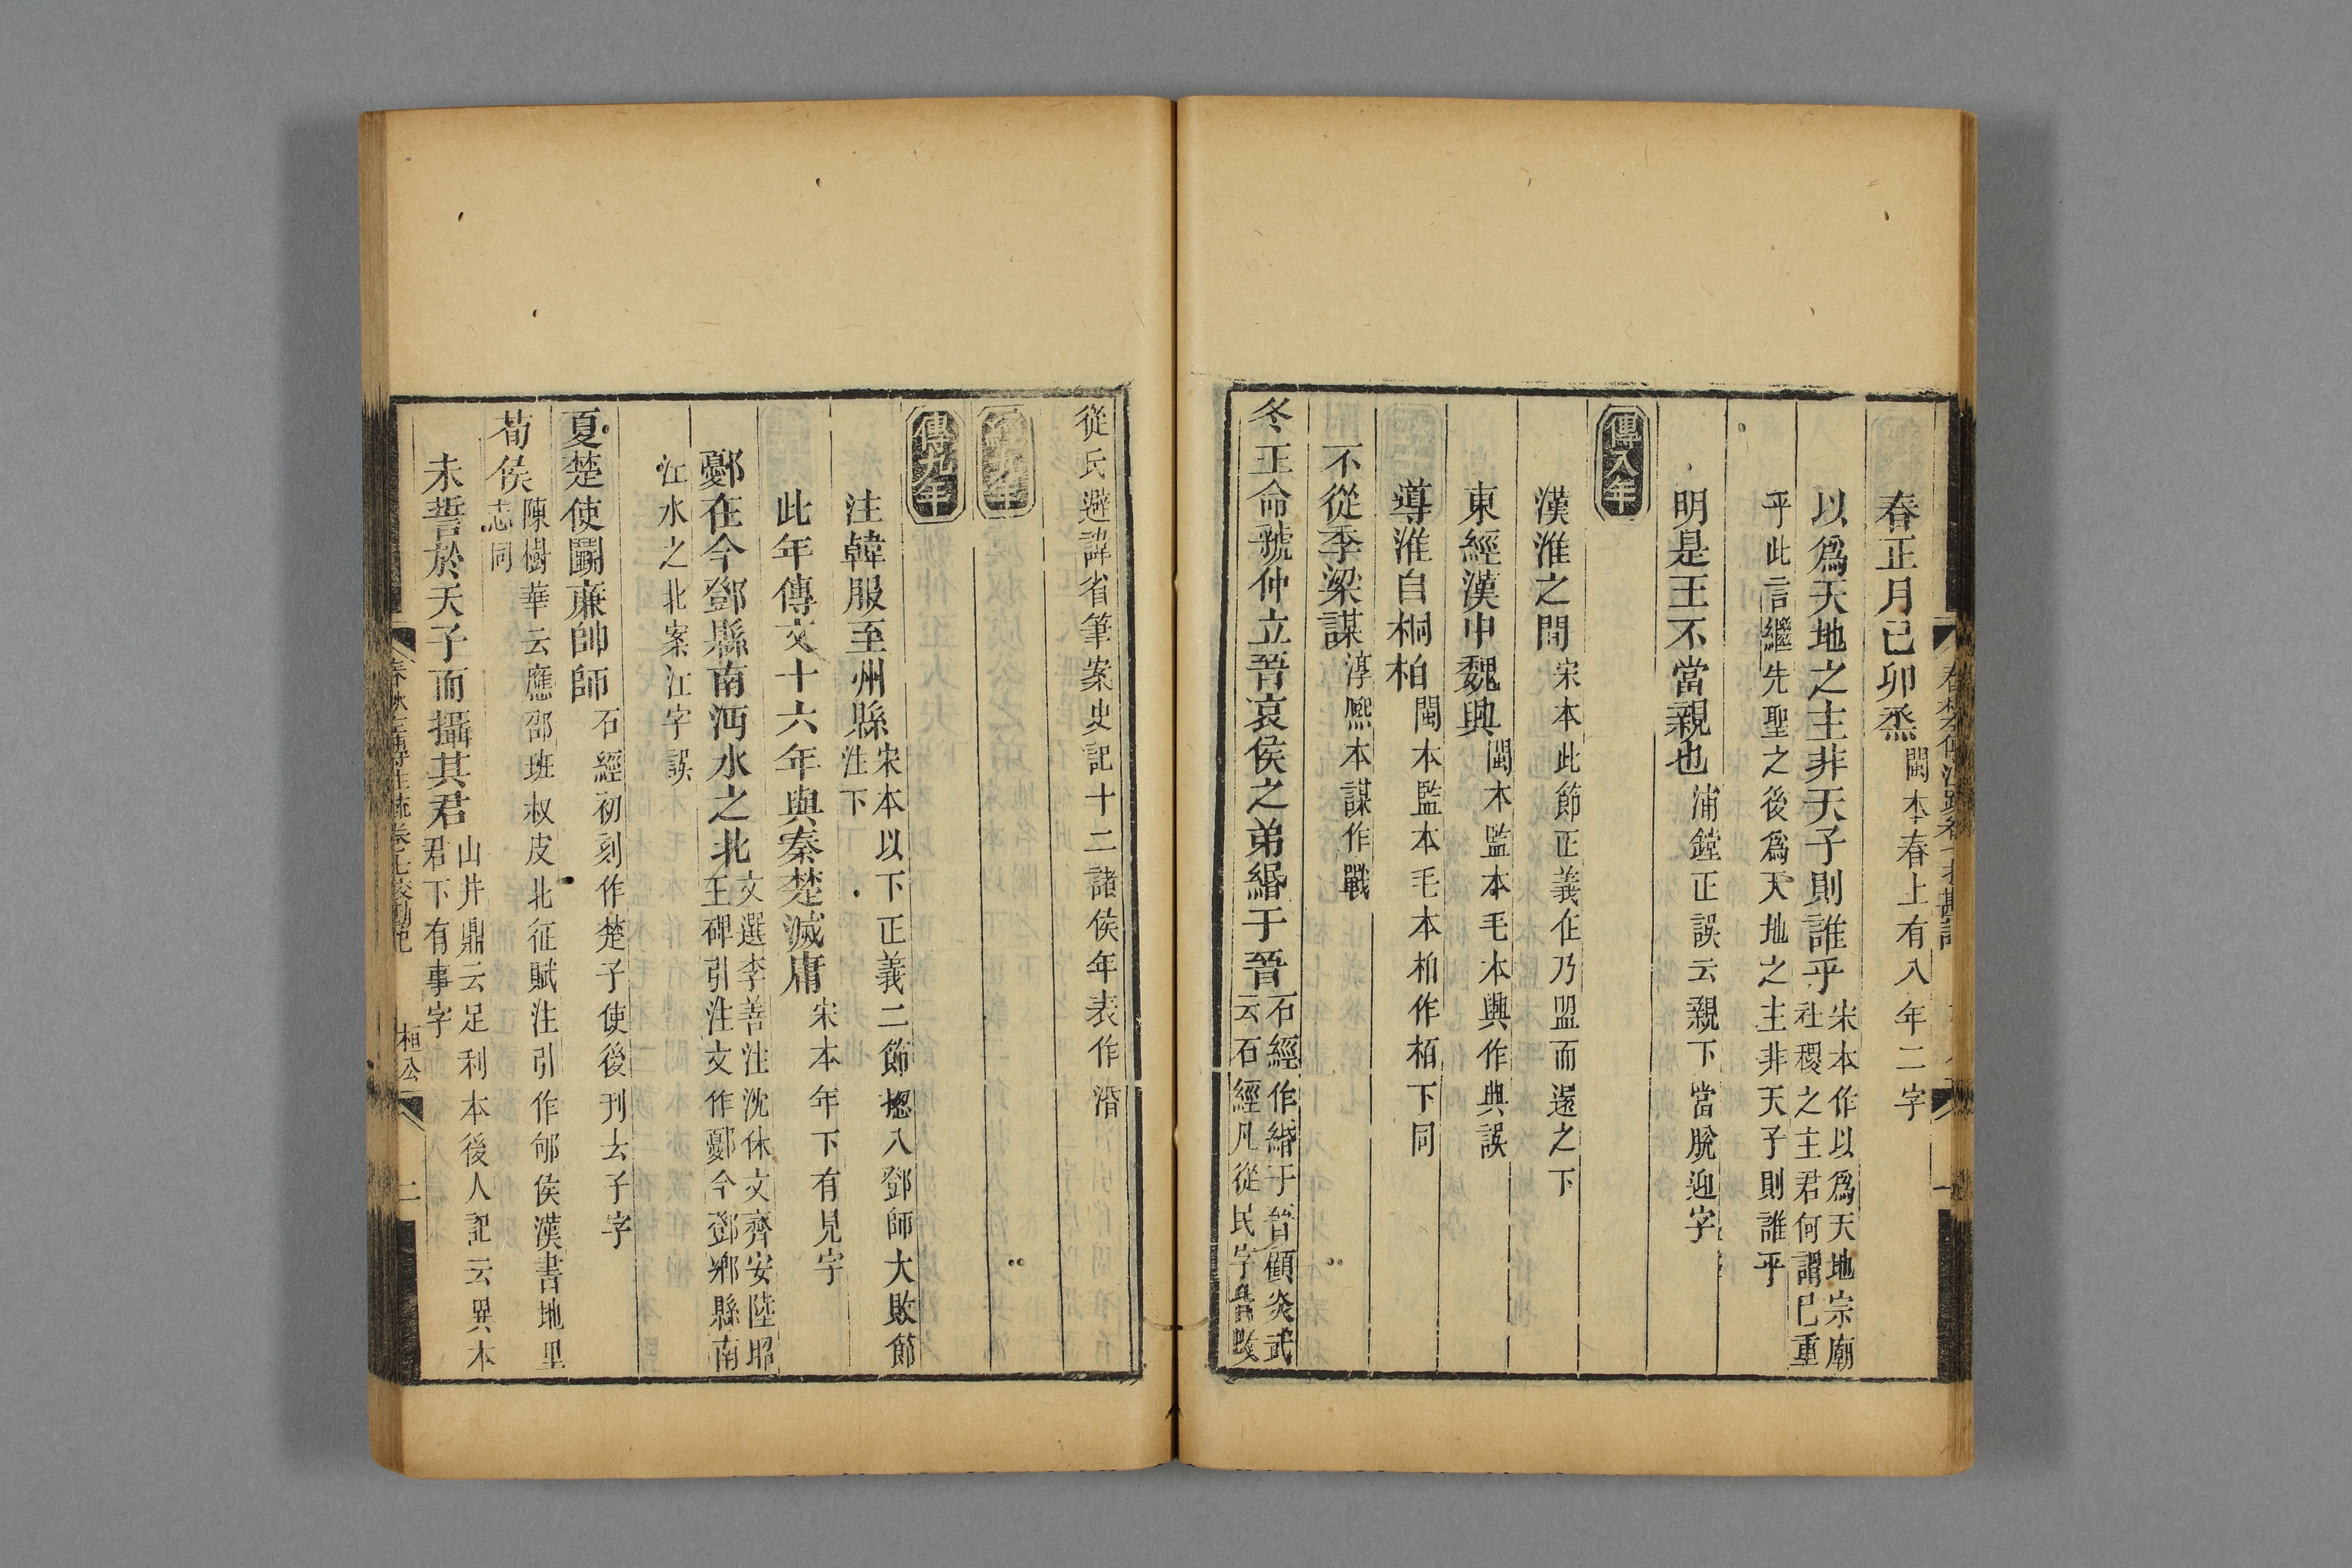 春正月己卯烝閩本春上有八年二字
以爲天地之主非天子則誰乎宋本作以爲天地宗廟社稷之主君何謂已重
乎此言繼先聖之後爲天地之主非天子則誰乎
明是王不當親也浦鏜正誤云親下當脫迎字
傳八年
漢淮之間宋本此節正義在乃盟而還之下
東經漢中魏興閩本監本毛本興作典誤
導淮自桐柏閩本監本毛本柏作栢下同
不從季梁謀淳熙本謀作戰
冬王命虢仲立晉哀侯之弟緡于晉石經作緡于晉顧炎武云石經凡從民字皆改
從氏避諱省筆案史記十二諸侯年表作湣
傳九年
注韓服至州縣宋本以下正義二節揔入鄧師大敗節注下
此年傳文十六年與秦楚滅庸宋本年下有見字
鄾在今鄧縣南沔水之北文選李善注沈休文齊安陸昭王碑引注文作鄾今鄧鄉縣南
江水之北案江字誤
夏楚使鬭廉帥師石經初刻作楚子使後刊去子字
荀侯陳樹華云應邵班叔皮北征賦注引作郇侯漢書地里志同
未誓於天子而攝其君山井鼎云足利本後人記云異本君下有事字
桓公
二